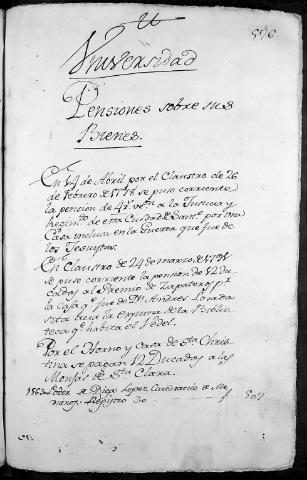 U
Universidad
576
Pensiones sobre sus
Bienes.
En 14 de Abril por el Claustro de 26
de Febrero de 1778 se puso corriente
la pension de 4 r.s v.on a la Justicia y
Regim.to de esta Ciudad de Sant.o por una
Casa inclusa en la Huerta que fue de
los Jesuytas.
En Claustro de 24 de marzo de 1791
se puso corriente la pension de 12 Du-
cados al Gremio de Zapateros p.r
la Casa q.e fue de D.n Andres
sita hacia la esquina de la Biblio
teca q.e habita el Vedel.
Por el Horno y Casa de S.ta Chris-
tina se pagan 12 Ducados a las
Monjas de S.ta Clara.
Poder a Diego Lopez Catedratico de Me-
Registro 30 507